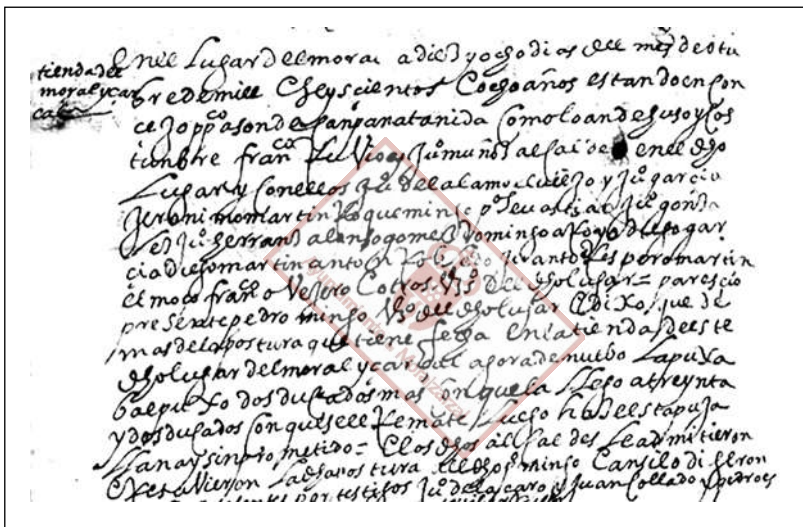 tienda del
moral y car
cal
En el Lugar del moral a diez y ocho dias del mes de otu
bre de mill E seyscientos E ocho años estando en con
cejo ppco a son de canpana tanida como lo an de huso y cos
tunbre franco Ruvio y Ju muñoz alcaldes en el dho
Lugar y con ellos Ju del alamo el viejo y Ju garcia
Jeronimo martin Roque mingo po sevastian Ju gonça
les Ju serrano alonso gomez domingo
cia diego martin anton pero martin
el moço franco Vejero E otros Vzos del dho lugar = parescio
presente pedro mingo Vzo del dho lugar E dixo que de
mas de la postura que tiene fecha En la tienda deste
dho lugar del moral y carcal agora de nuebo La puxa
ba e puxo dos ducados mas con que la llego a treynta
y dos ducados con que se le Remate luego Esta puja
llana y sin prometido = E los dhos allcaldes Le admitieron
E Recivieron La dha postura al dho po mingo E ansi lo dixeron
testigos Ju de la E Juan Collado y pedro es
Ayuntamiento de Moralzarzal